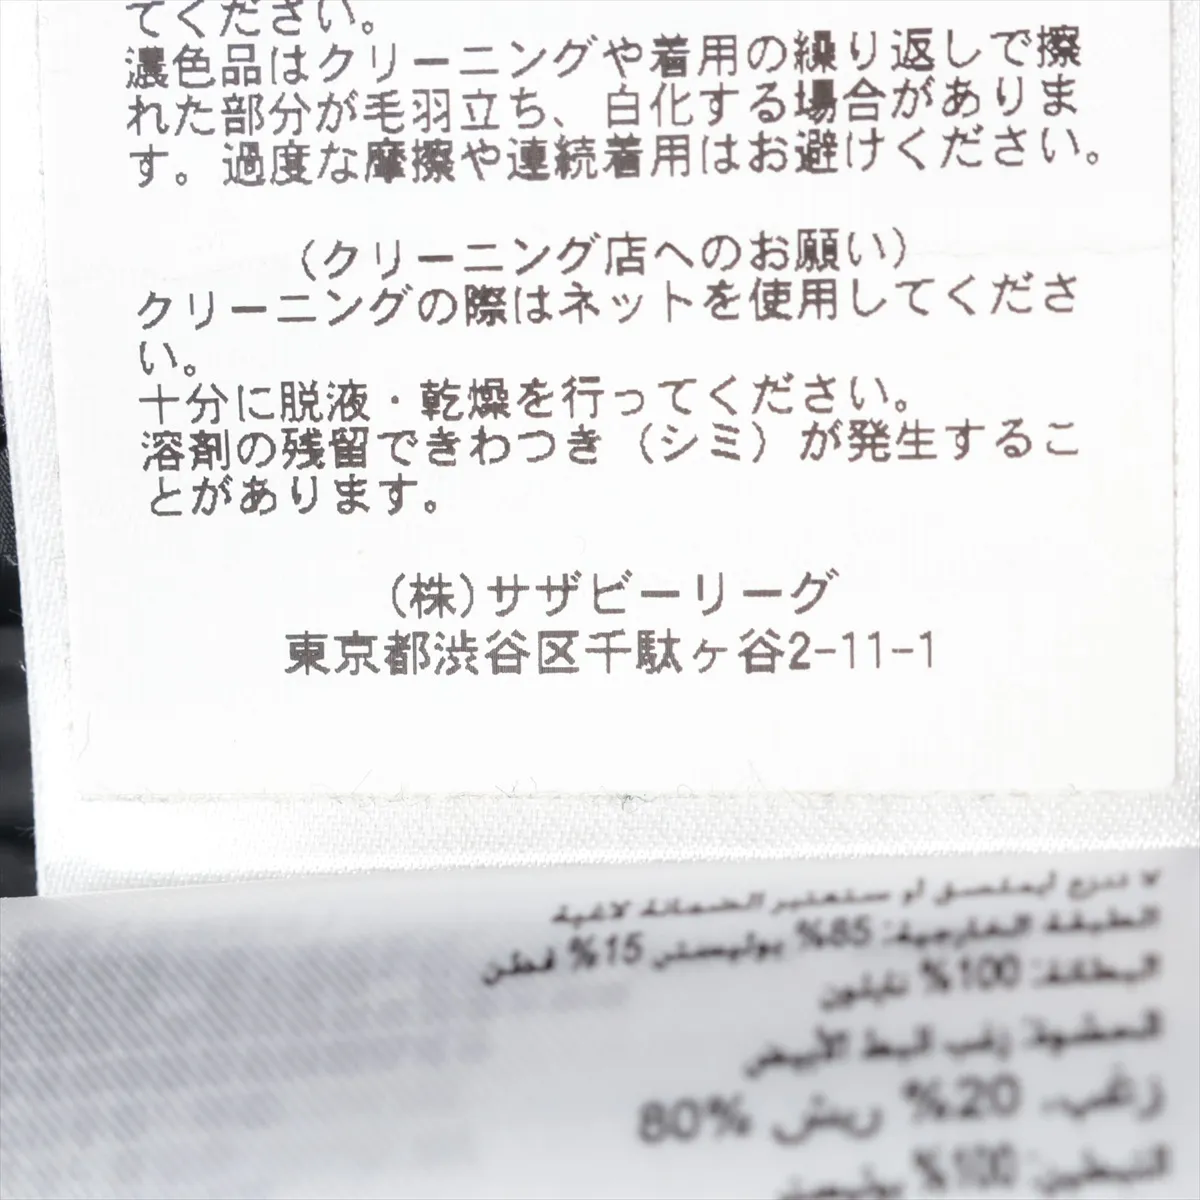 てください。
濃色品はクリーニングや着用の繰り返しで擦
れた部分が毛羽立ち、白化する場合がありま
す。過度な摩擦や連続着用はお避けください。
(クリーニング店へのお願い)
クリーニングの際はネットを使用してくださ
い。
十分に脱液・乾燥を行ってください。
溶剤の残留できわつき（シミ）が発生するこ
とがあります。
(株)サザビーリーグ
東京都渋谷区千駄ヶ谷2-11-1
لا تنزع أو ستعتبر الضمانة لاغية
الطبقة الخارجية: 85% بوليستر 15% قطن
البطانة: 100% نايلون
الحشوة: زغب البط الأبيض
زغب. 20% ريش 80%
التبطين: 100% بوليستر